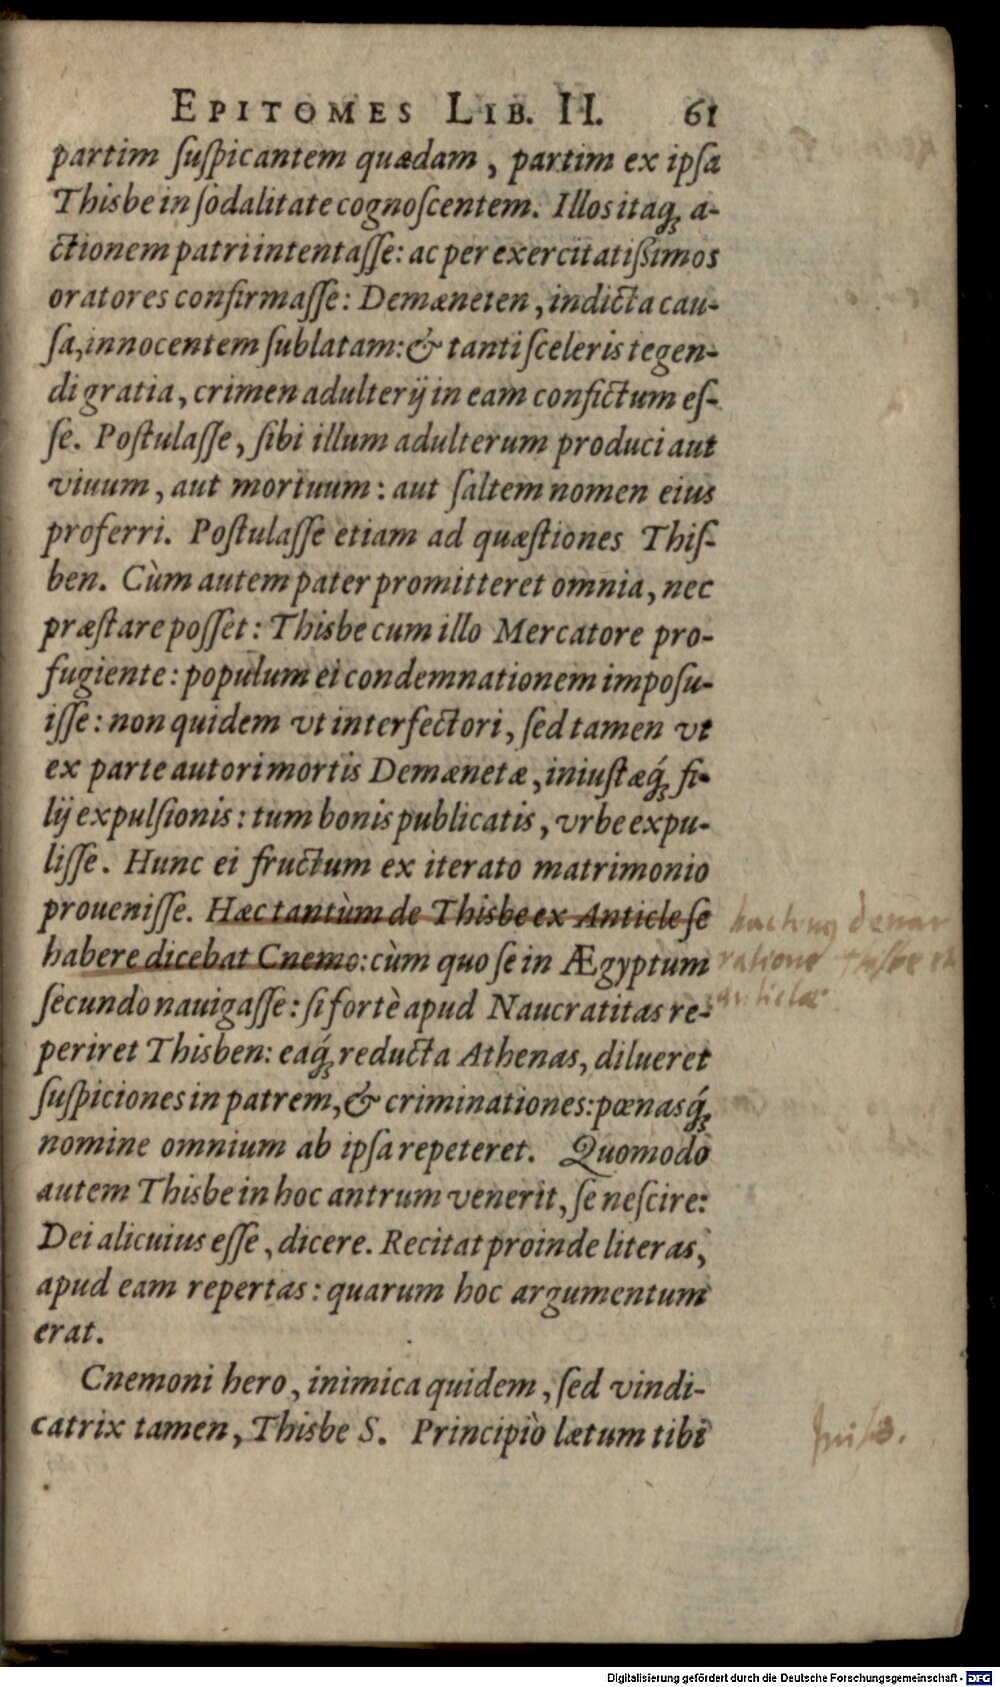 EPITOMES LIB. II. 61
partim ſuſpicantem quædam, partim ex ipſa
Thisbe in ſodalitate cognoſcentem. Illos itaq́; a-
ctionem patri intentaſſe: ac per exercitatißimos
oratores confirmaſſe: Demæneten, indicta cau-
ſa, innocentem ſublatam: & tanti ſceleris tegen-
di gratia, crimen adulterij in eam confictum eſ-
ſe. Poſtulaſſe, ſibi illum adulterum produci aut
viuum, aut mortuum: aut ſaltem nomen eius
proferri. Poſtulaſſe etiam ad quæſtiones Thiſ-
ben. Cùm autem pater promitteret omnia, nec
præſtare poſſet: Thisbe cum illo Mercatore pro-
fugiente: populum ei condemnationem impoſu-
iſſe: non quidem vt interfectori, ſed tamen vt
ex parte autori mortis Demænetæ, iniuſtæq́; fi-
lij expulſionis: tum bonis publicatis, vrbe expu-
liſſe. Hunc ei fructum ex iterato matrimonio
proueniſſe. Hæc tantùm de Thisbe ex Anticle ſe
habere dicebat Cnemo: cùm quo ſe in Ægyptum
ſecundo nauigaſſe: ſi fortè apud Naucratitas re-
periret Thisben: eaq́; reducta Athenas, dilueret
ſuſpiciones in patrem, & criminationes: pœnasq́;
nomine omnium ab ipſa repeteret. Quomodo
autem Thisbe in hoc antrum venerit, ſe neſcire:
Dei alicuius eſſe, dicere. Recitat proinde literas,
apud eam repertas: quarum hoc argumentum
erat.
Cnemoni hero, inimica quidem, ſed vindi-
catrix tamen, Thisbe S. Principiò lætum tibi
ratione Thisbe
Digitalisierung gefördert durch die Deutsche Forschungsgemeinschaft - DFG